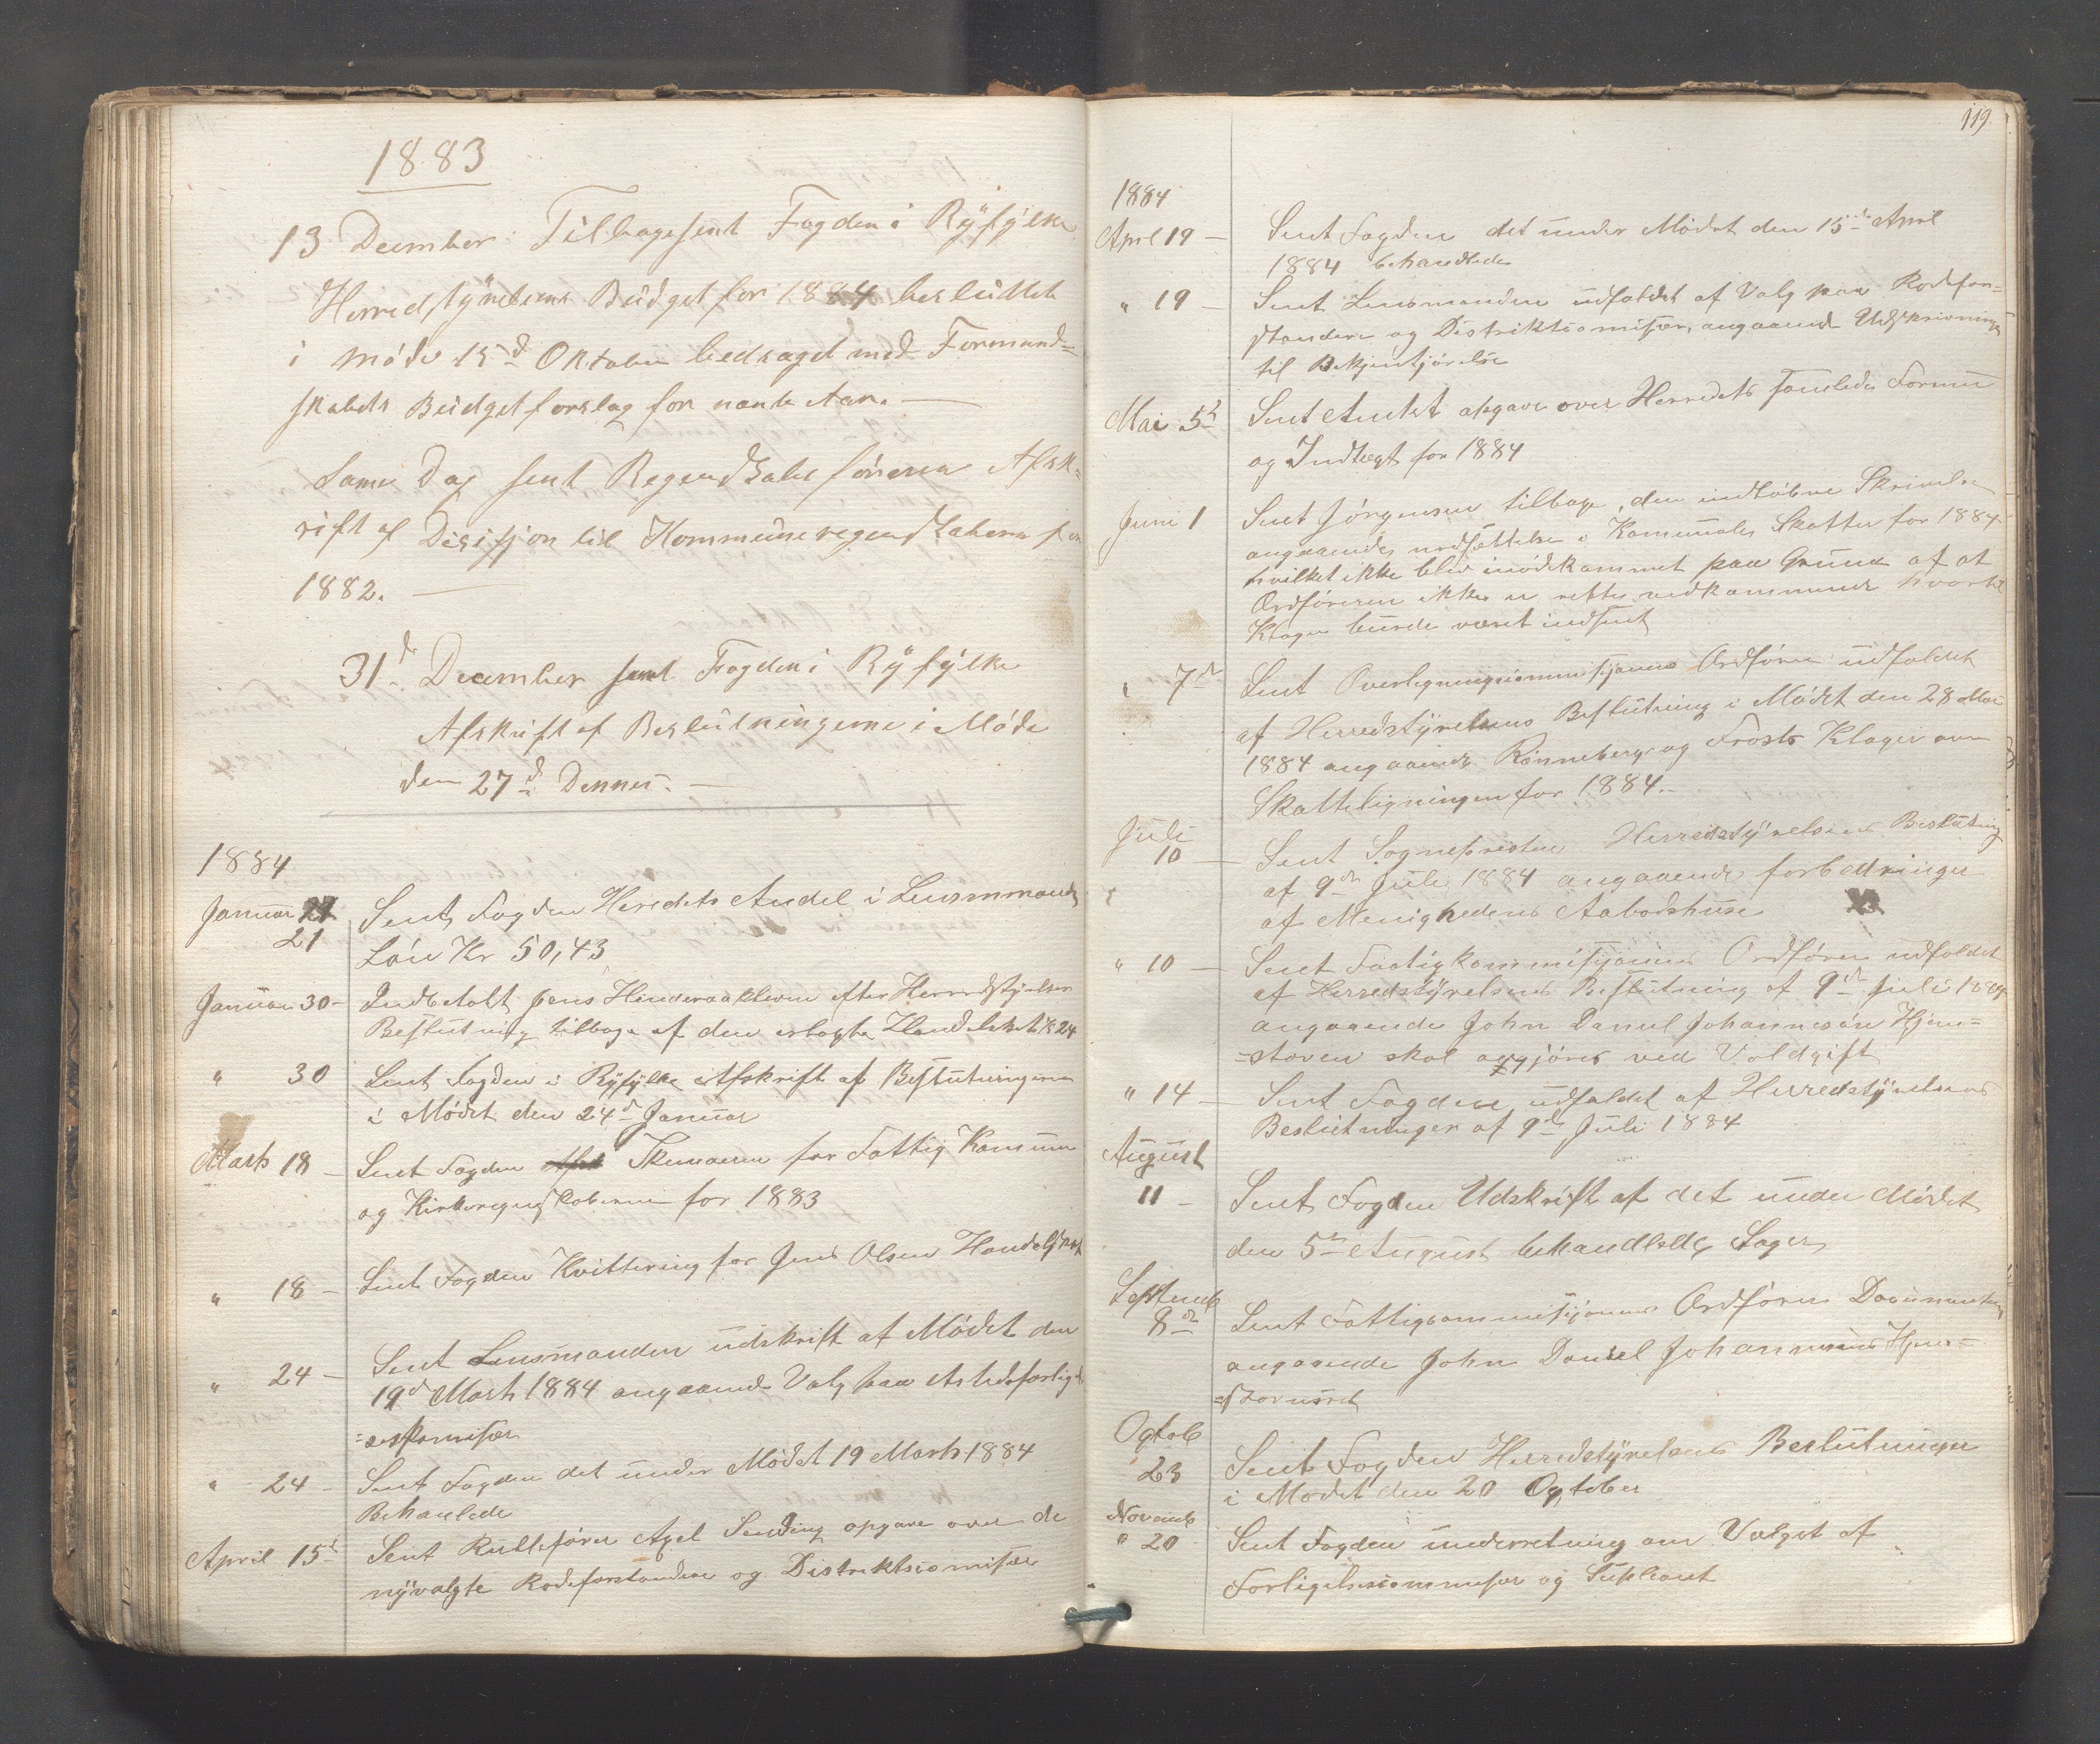 1883
13 December: Tilbagesent Fogden i Ryfylke
Herredstyrelsens Budget for 1884 besluttet
i Møde 15d Oktober ledsaget med Formand=
skabets Budgetforslag for nævnte Aar. —
Samme Dag sent Regnskabsføreren Afsk=
rift af Desisjon til Kommuneregnskabern for
1882. —
31d December sent Fogden i Ryfylke
Afskrift af Beslutningerne i Møde
den 27d Dennes. —
1884
Januar 21
Sent Fogden Heredets Andel i Lensmands
Løn Kr 50,43
Januar 30 – Indbetalt jens efter Herredstyrelsen
Beslutning tilbage af den erlagte Handelskat Kr 24
" 30 Sent Fogden i Ryfylke Afskrift af Beslutningerne
i Mødet den 24d Januar
Marts 18 – Sent Fogden Skemaerne for Fattig Komune
og Kirkeregnskaberne for 1883
" 18 – Sent Fogden Kvittering for Jens Olsen Handelskat
" 24 – Sent Lensmanden udskrift af Mødet den
19d Marts 1884 angaaende Valg paa
" 24 – Sent Fogden det under Mødet 19 Marts 1884
Behanlede
April 15d Sent Rullefører Axel opgave over de
nyvalgte Rodeforstandere og Distriktscomisær
119.
1884
Aprl 19 – Sent Fogden det under Mødet den 15de April
1884 behandlede
" 19 – Sent Lensmanden udfaldet af Valg paa Rodefor=
standere og Distriktscomisær, angaaende Udskrivninger
til Bekjentjørelse
Mai 5d Sent Amtet opgave over Herredets samlede Formue
og Indtægt for 1884
Juni 1 Sent Jørgensen tilbage, den indløbne Skrivelse
angaaende nedsættelse i Komunale Skatter for 1884
hvilket ikke blev imødekommet paa Grund af at
Ordføreren ikke er rette vedkommende hvortil
Klagen burde været indsent
" 7de Sent Overligningscommisjonens Ordfører udfaldet
af Herredstyrelsens Beslutning i Mødet den 28 Mai
1884 angaaende Rønneberg og Frosts Klager over
Skatteligningen for 1884.
Juli
10 – Sent Sognepresten Herredstyrelsens Beslutning
af 9de Juli 1884 angaaende forbedringer
af Menighedens Aabodshuse
" 10 – Sent Fattigkommisjonens Ordfører udfaldet
af Herredstyrelsens Beslutning af 9de Juli 1884
angaaende John Daniel Johannesen Hjem=
=staven skal afgjøres ved Voldgift
" 14 – Sent Fogden udfaldet af Herredstyrelsens
Beslutninger af 9de Juli 1884
August
11 – Sent Fogden Udskrift af det under Mødet
den 5te August behandllede Sager
Septemb
8de Sent Fattigcommisjonens Ordfører Documenterne
angaaende John Daniel Johannesens Hjem=
=stavnsret
Ogtob
23 Sent Fogden Herredstyrelsens Beslutninger
i Mødet den 20 Ogtober
Novemb
" 20 Sent Fogden underretning om Valget af
Forligelsescommisær og Supleant